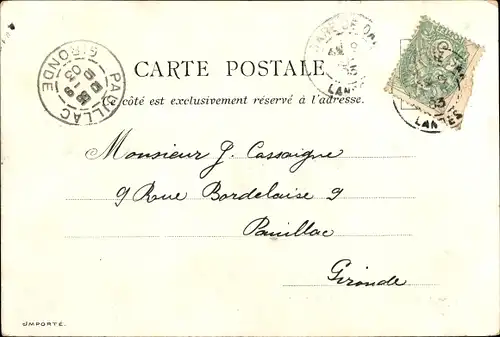 PAUILLAC
GIRONDE
03
LANDES
LANDES
CARTE POSTALE
Ce côté est exclusivement réservé à l'adresse.
Monsieur J. Cassaigne
9 Rue Bordelaise 9
Pauillac
Gironde
IMPORTÉ.